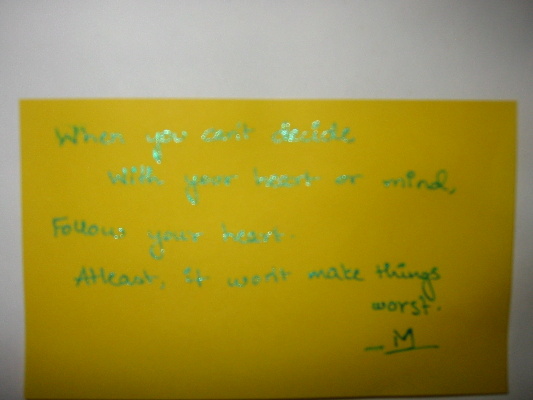 When you can't decide
With your heart or mind,
Follow your heart.
Atleast, it won't make things
worst.
_M_